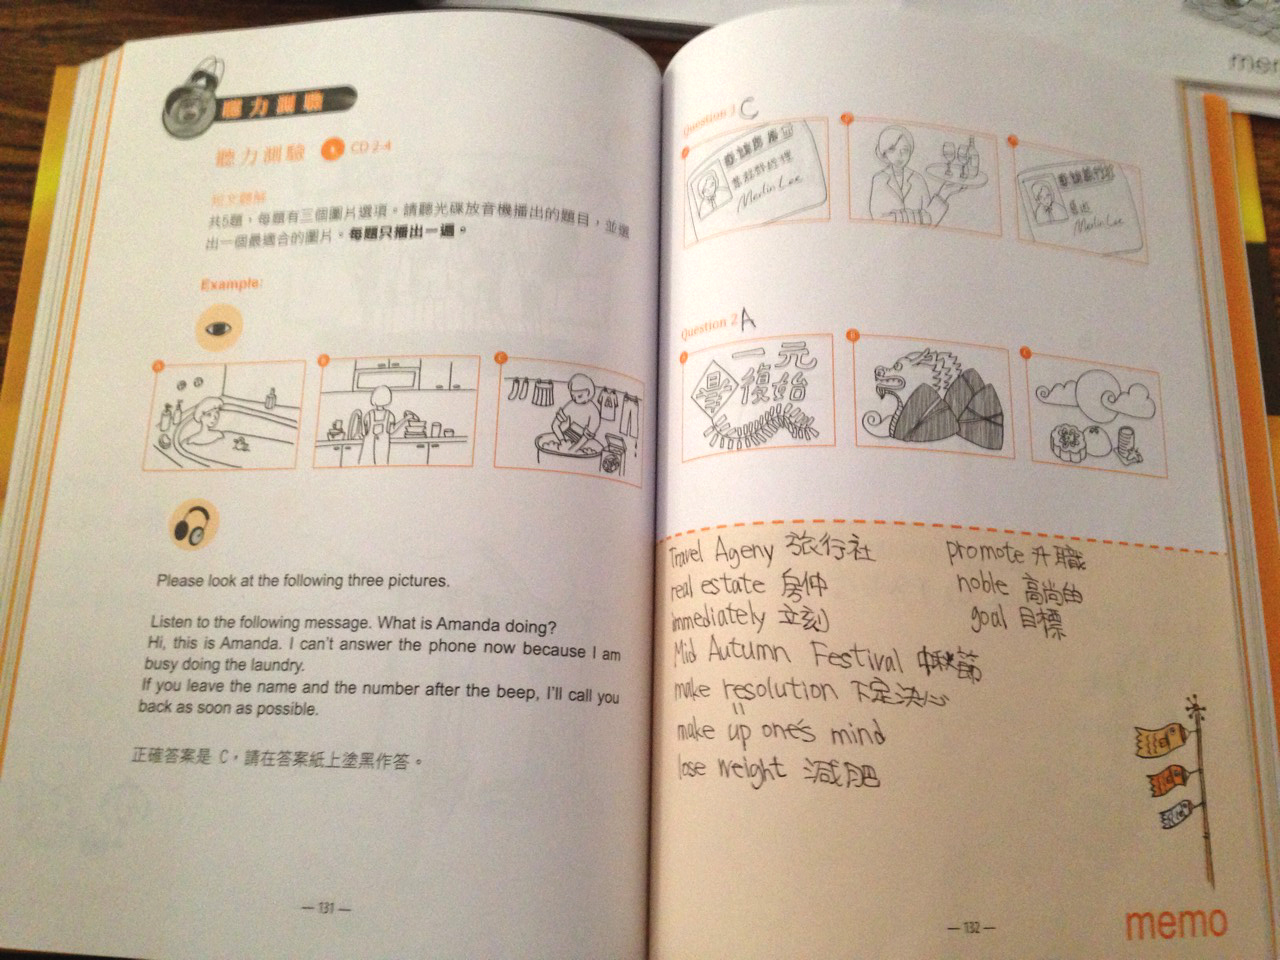 聽力測驗
聽力測驗 CD 2-4
短文聽解
共5題，每題有三個圖片選項。請聽光碟放音機播出的題目，並選
出一個最適合的圖片。每題只播出一遍。
Example:
A
B
C
Please look at the following three pictures.
Listen to the following message. What is Amanda doing?
Hi, this is Amanda. I can't answer the phone now because I am
busy doing the laundry.
If you leave the name and the number after the beep, I'll call you
back as soon as possible.
正確答案是 C，請在答案紙上塗黑作答。
— 131 —
Question 1 C
Merlin Lee
Merlin Lee
Question 2 A
B
一元
復始
Travel Ageny 旅行社
real estate 房仲
immediately 立刻
Mid Autumn Festival 中秋節
make resolution 下定決心
make up one's mind
lose weight 減肥
promote 升職
noble 高尚的
goal 目標
— 132 —
memo